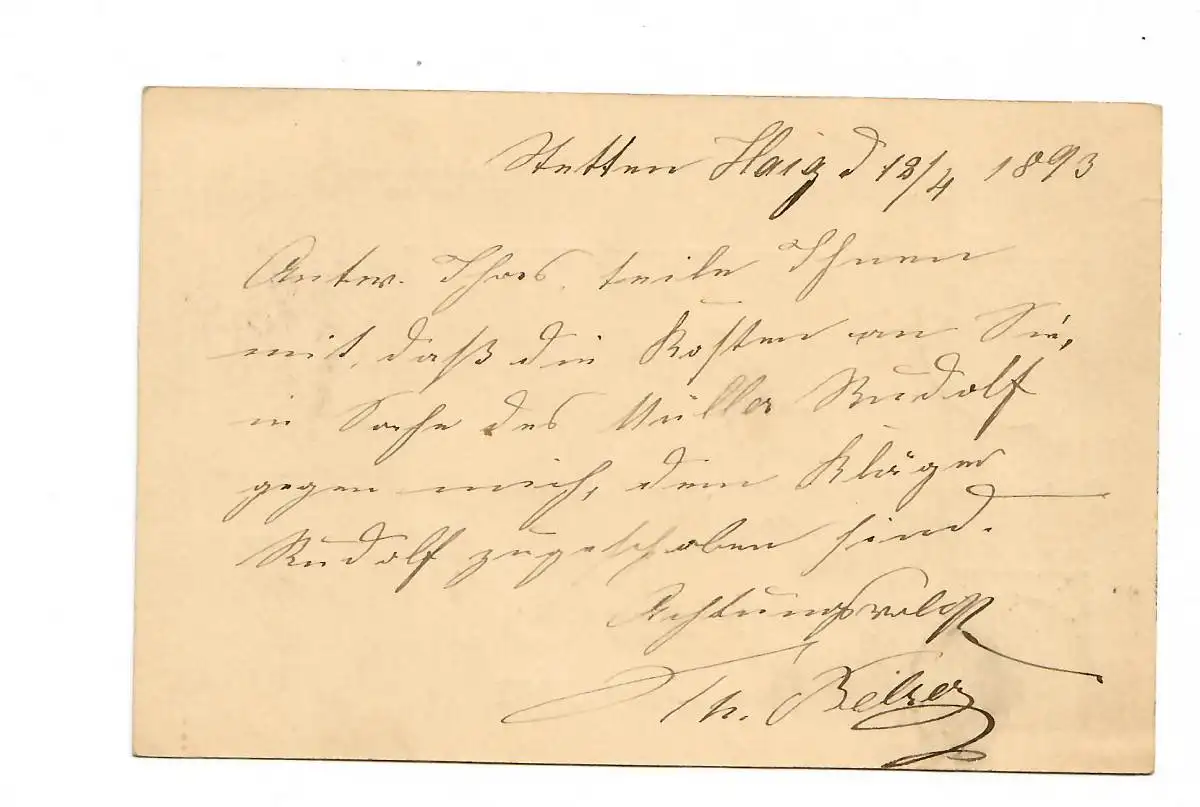 Stetten Haig d 18/4 1893
Antw. Ihres, teile Ihnen
mit, daß die Kosten an Sie,
in Sache des Müller Rudolf
gegen mich, dem Kläger
Rudolf zugeschoben sind.
Achtungsvollst
Th. Beiser